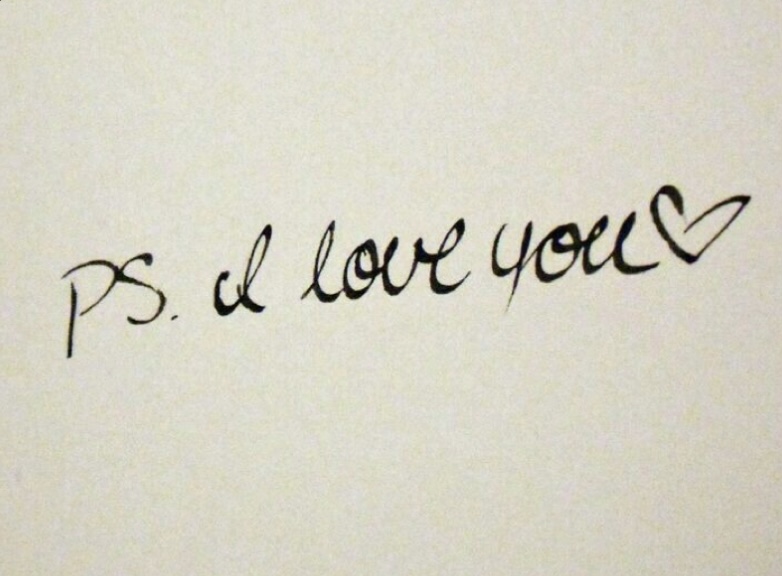 PS. I love you♡